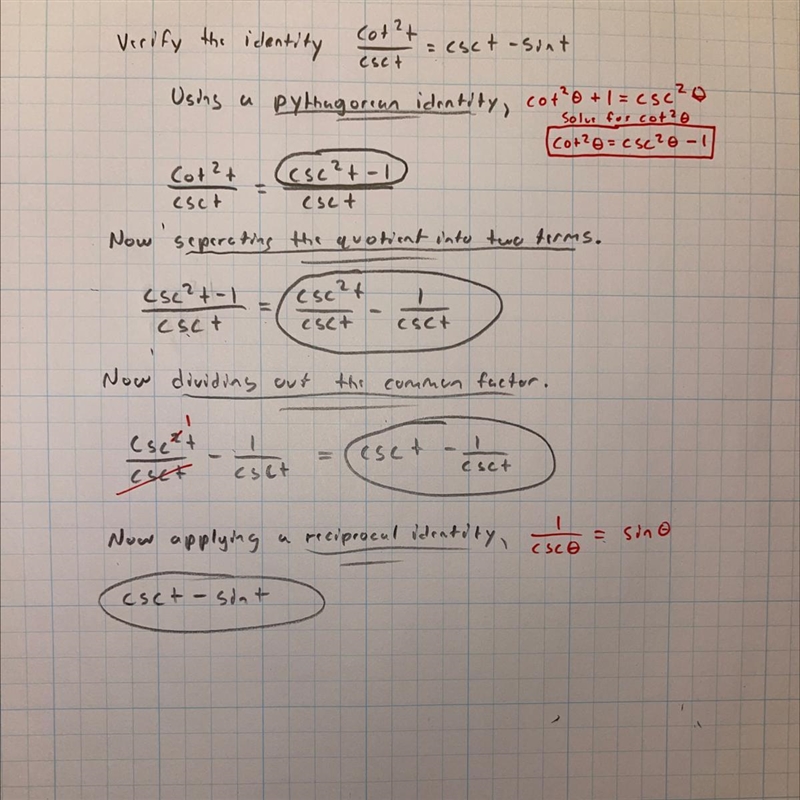 Verify the identity cot²t/csct = csct - sint
Using a pythagorean identity, cot²θ + 1 = csc²θ
Solve for cot²θ
cot²θ = csc²θ - 1
cot²t/csct = csc²t - 1/csct
Now seperating the quotient into two terms.
csc²t - 1/csct = csc²t/csct - 1/csct
Now dividing out the common factor.
1
csc²t/csct - 1/csct = csct - 1/csct
Now applying a reciprocal identity, 1/cscθ = sinθ
csct - sint